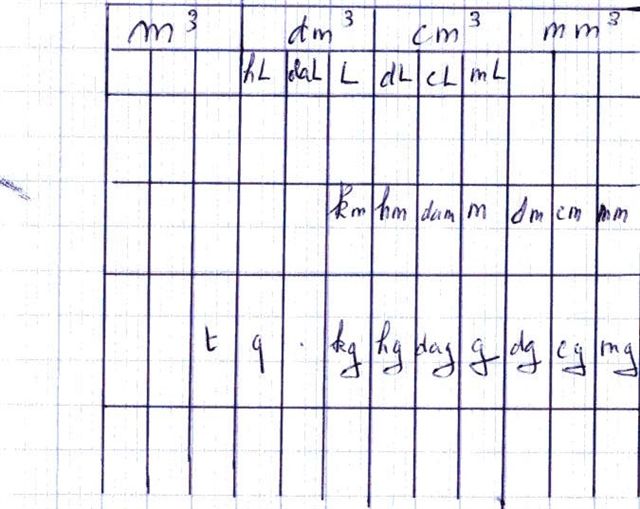 m³ dm³ cm³ mm³
hL daL L dL cL mL
km hm dam m dm cm mm
t q . kg hg dag g dg cg mg